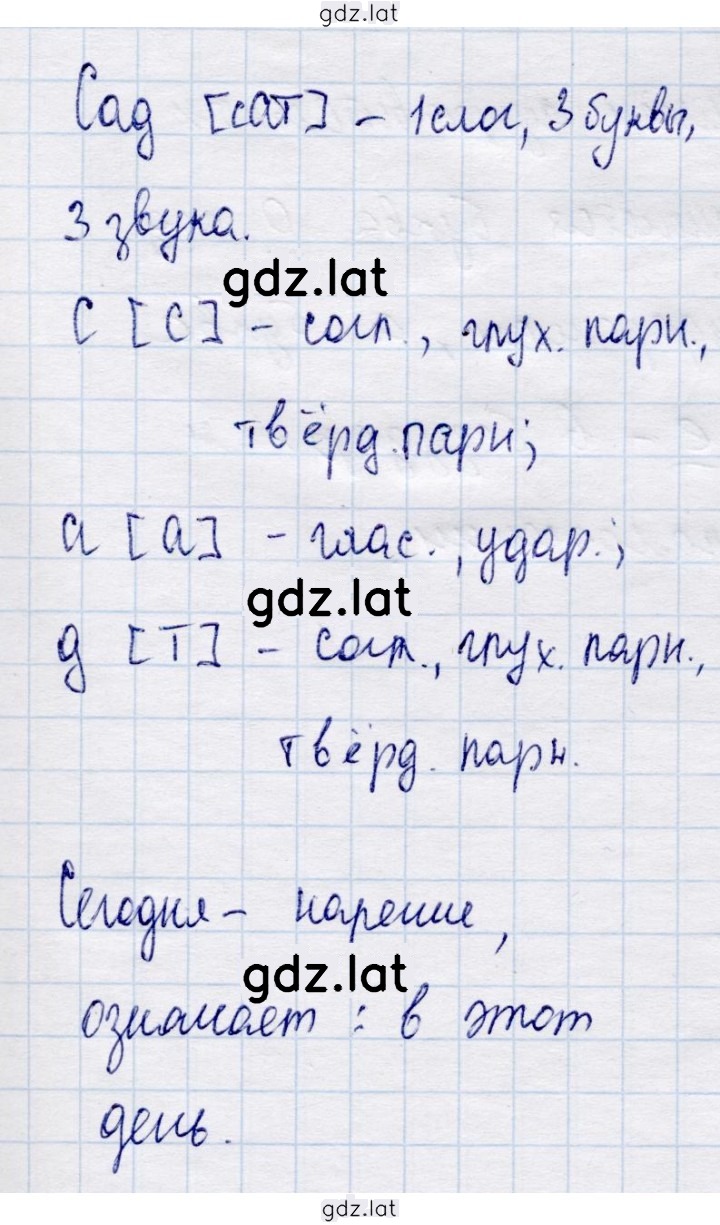 gdz.lat
Сад [сат] – 1 слог, 3 буквы,
3 звука.
gdz.lat
С [с] – согл., глух. парн.,
твёрд. парн;
а [а] – глас., удар.;
gdz.lat
д [т] – согл., глух. парн.,
твёрд. парн.
Сегодня – наречие,
gdz.lat
означает: в этот
день.
gdz.lat